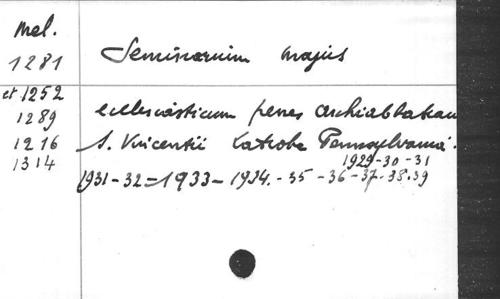 Mel.
1281
Seminarium majus
et 1252
ecclesiasticum penes Archiabbatiam
1289
S. Vincentii Latrobe Pennsylvania.
1216
1314
1929-30-31
1931-32=1933-1934.-35-36-37-38.39